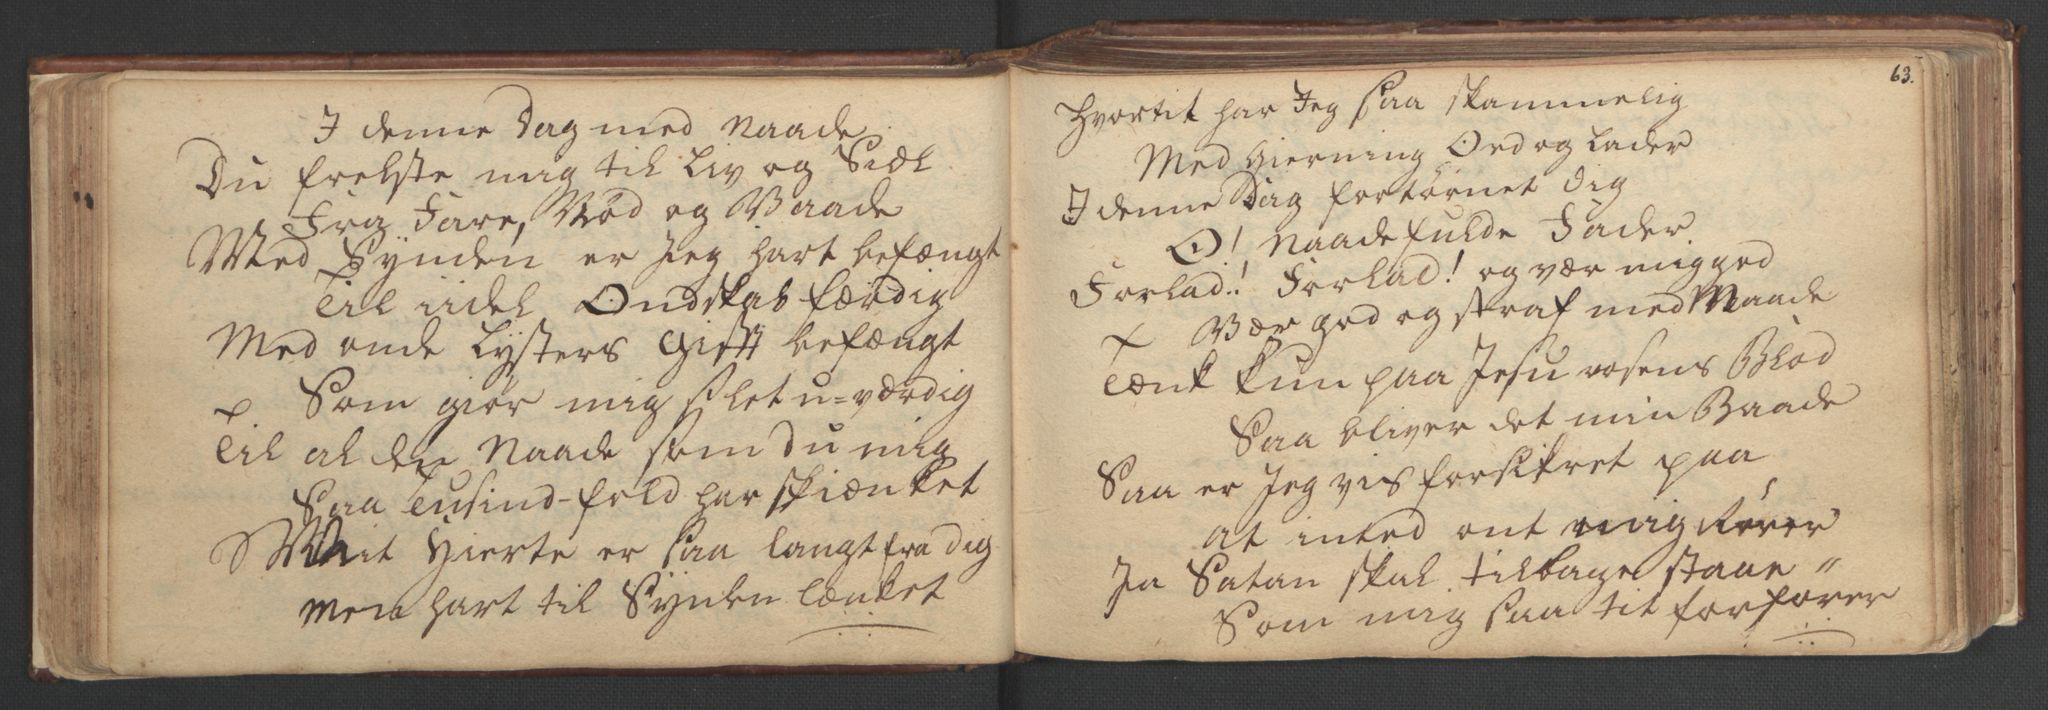 I denne Dag med Naade
Du frelste mig til Liv og Siæl
Fra Fare, Nød og Vaade
Med Synden er Jeg hart befængt
Til iidel Ondskab færdig
Med onde Lysters Gifft befængt
Som giør mig slet u=værdig
Til al den Naade som Du mig
Saa Tusind-fold har skiænket
Mit Hierte er saa langt fra dig
Men hart til Synden lænket
63.
Hvortit har Jeg saa skammelig
Med Gierning Ord og Lader
I denne Dag fortørnet dig
O! Naadefulde Fader
Forlad! Forlad! og vær mig god
Vær god og straf med Maade
Tænk kun paa Jesu rosens Blod
Saa bliver det min Baade
Saa er Jeg vis forsikret paa
at inted ont mig Rører
Ja Satan skal tilbage staae
Som mig saa tit forfører